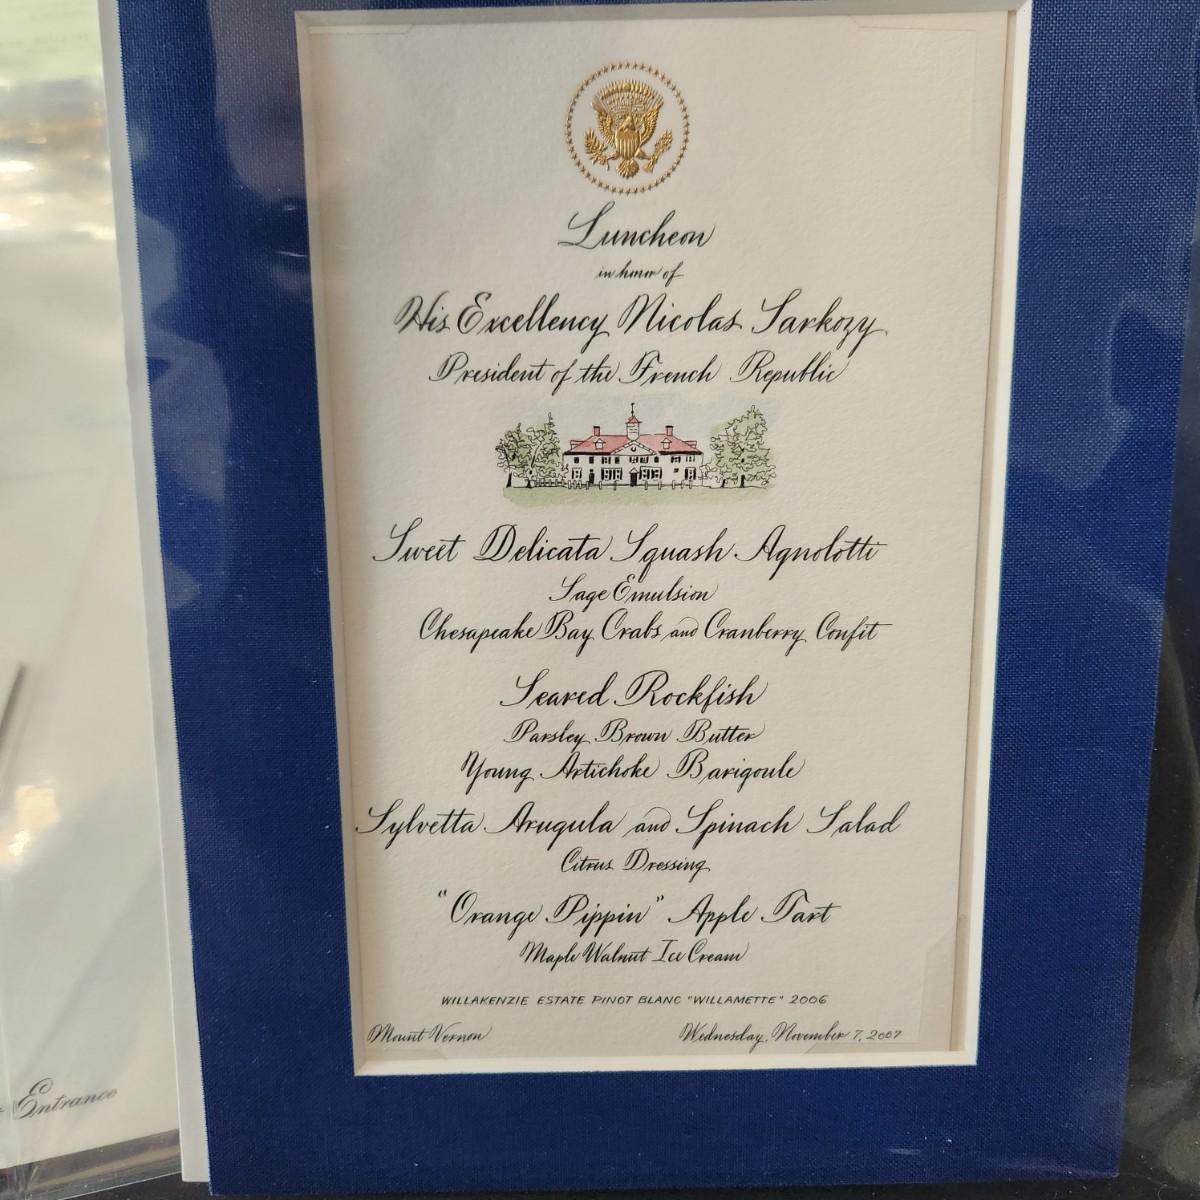 Luncheon
in honor of
His Excellency Nicolas Sarkozy
President of the French Republic
Sweet Delicata Squash Agnolotti
Sage Emulsion
Chesapeake Bay Crabs and Cranberry Confit
Seared Rockfish
Parsley Brown Butter
Young Artichoke Barigoule
Sylvetta Arugula and Spinach Salad
Citrus Dressing
"Orange Pippin" Apple Tart
Maple Walnut Ice Cream
WILLAKENZIE ESTATE PINOT BLANC "WILLAMETTE" 2006
Mount Vernon
Wednesday, November 7, 2007
Entrance